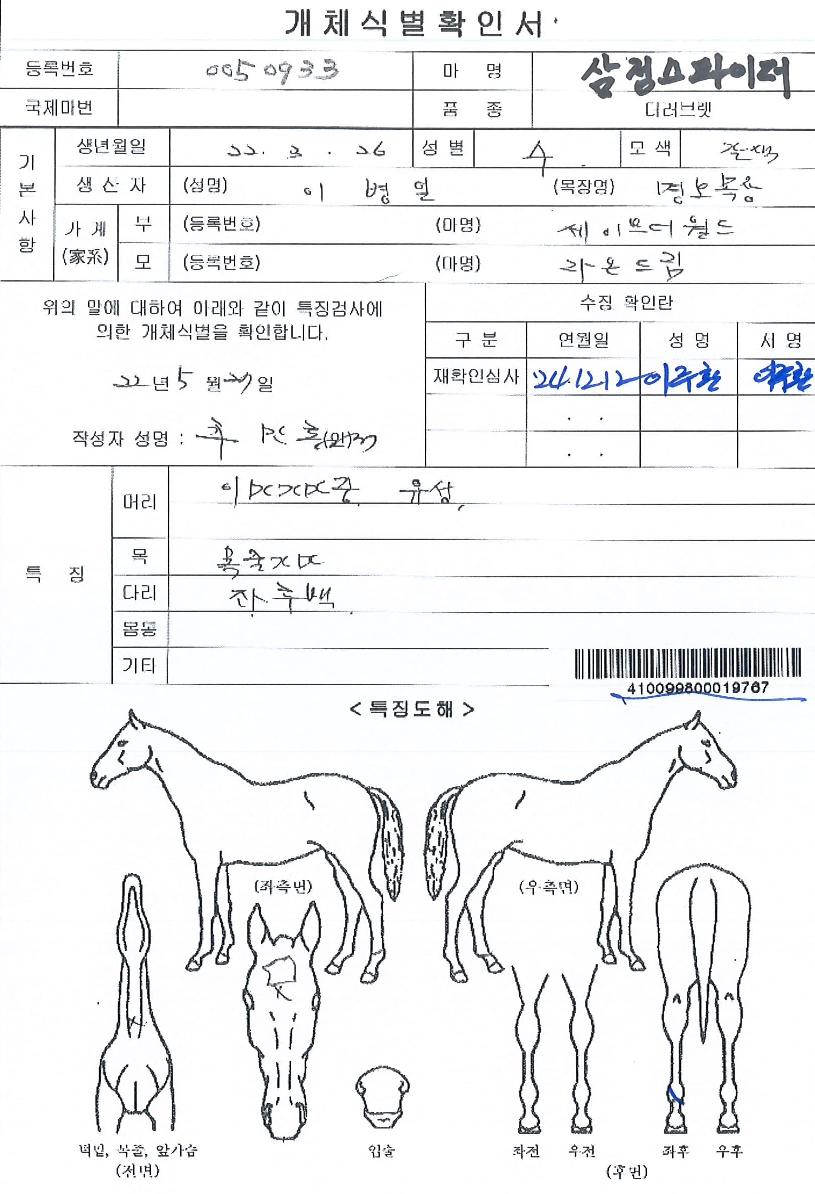 개체식별확인서
등록번호 0050933 마 명 삼정스파이더
국제마번 품 종 더러브렛
기본사항
생년월일 22. 3. 26 성별 수 모색 갈색
생산자 (성명) 이병일 (목장명) 목장
가계(家系) 부 (등록번호) (마명) 세이브더월드
모 (등록번호) (마명) 라온드림
위의 말에 대하여 아래와 같이 특징검사에
의한 개체식별을 확인합니다.
22년 5월 일
작성자 성명 :
수징 확인란
구 분 연월일 성 명 서 명
재확인심사 '24.12.12 이주환 이주환
. .
. .
특 징
머리 유성
목 목줄
다리 좌후백
몸통
기타
410099800019767
< 특징도해 >
(좌측면) (우측면)
턱밑, 목줄, 앞가슴 입술 좌전 우전 좌후 우후
(전면) (후면)